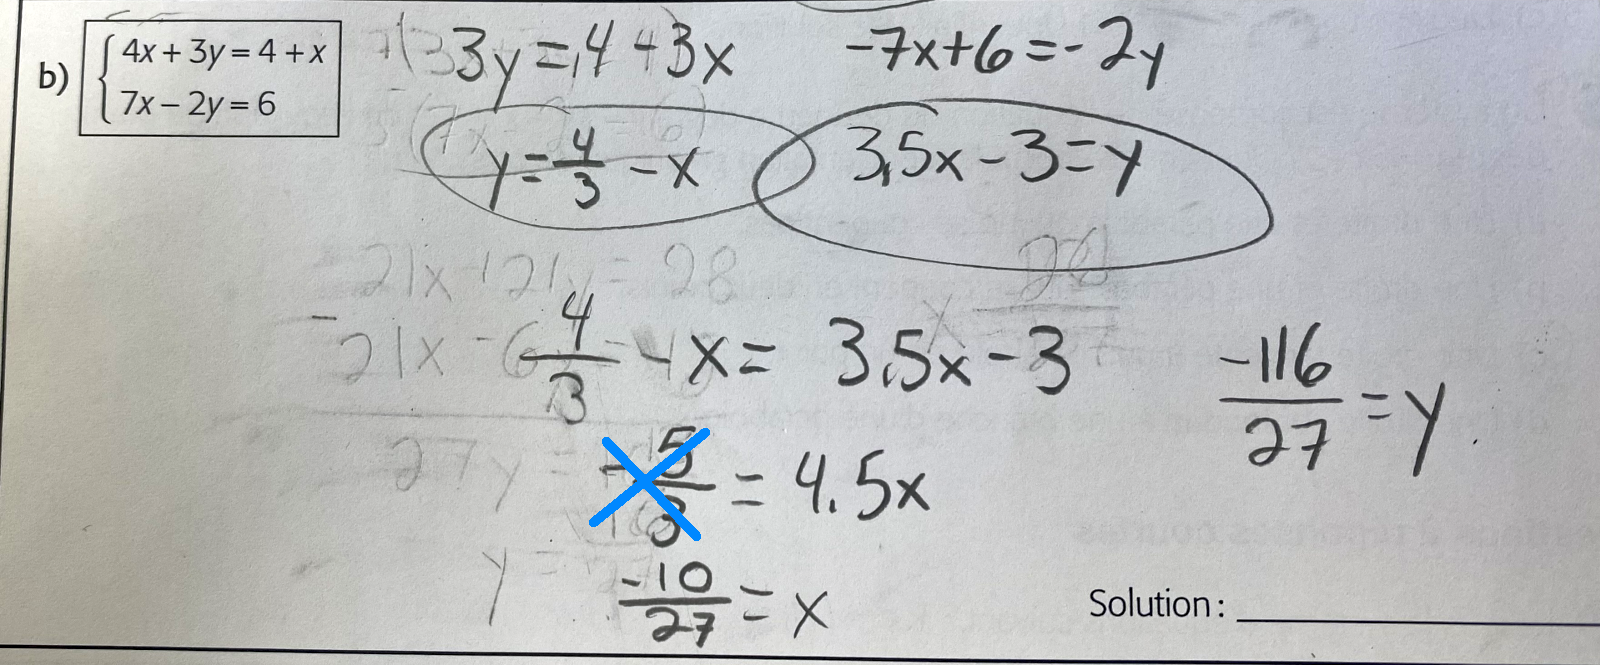 b) { 4x + 3y = 4 + x
7x – 2y = 6
3y = 4 + 3x
-7x + 6 = -2y
y = 4/3 - x
3,5x - 3 = y
21x + 21y = 28
4/3 - x = 3,5x - 3
-116/27 = y
-5/3 = 4.5x
27y =
y =
-10/27 = x
Solution :